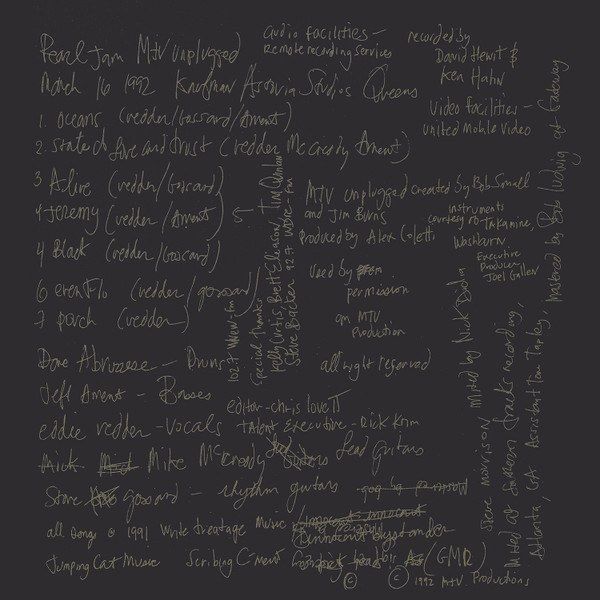 Pearl Jam MTV unplugged
March 16 1992 Kaufman Astoria Studios Queens
1. oceans (vedder/Gossard/Ament)
2. state of love and trust (vedder McCready Ament)
3 Alive (vedder/Gossard)
4 Jeremy (vedder/Ament)
4 Black (vedder/Gossard)
6 evenflo (vedder/gossard)
7 porch (vedder)
Dave Abruzzese - Drums
Jeff Ament - Basses
eddie vedder - vocals
Mick Mike McCready Lead guitars
Stone gossard - rhythm guitars
all songs © 1991 write treatage music
innocent bystander
Jumping Cat Music Scribing C-ment (GMR)
© © 1992 MTV. Productions
audio facilities -
Remote recording services
recorded by
David Hewitt &
Ken Hahn
Video facilities -
united Mobile video
MTV unplugged created by Bob Small
and Jim Burns
Produced by Alex Coletti
instruments
courtesy of takamine,
Washburn
Executive
Producer
Joel Gallen
Used by
permission
on MTV
Production
all right reserved
editor - chris love II
Talent Executive - Rick Krim
102.7 fm
special thanks
Kelly Curtis, Brett Eliason, Tim
Steve Backer 92.7 WDRE-fm
mixed by Nick Didia
Steve morrison
Mixed at southern tracks recording,
Atlanta, GA Assistant Tom Tapley,
mastered by Bob Ludwig at Gateway